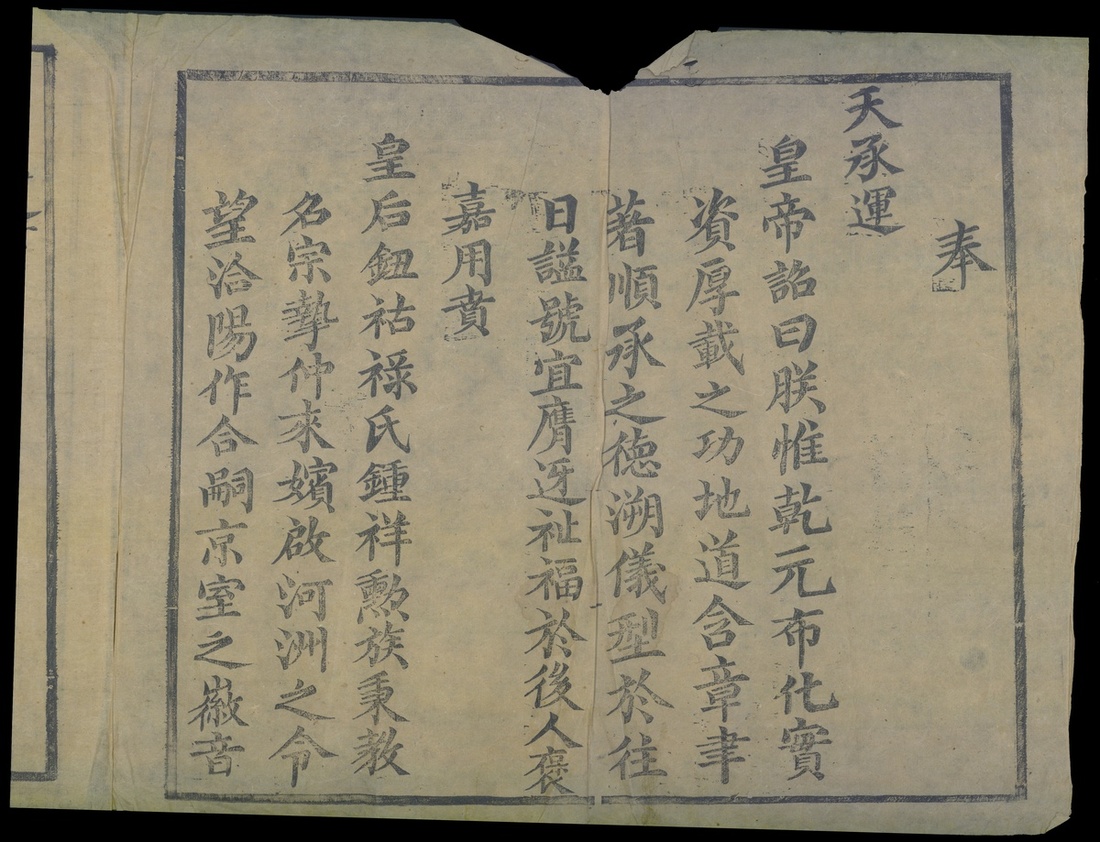 奉
天承運
皇帝詔曰朕惟乾元布化實
資厚載之功地道含章聿
著順承之德溯儀型於往
日謚號宜膺迓祉福於後人褒
嘉用賁
皇后鈕祜祿氏鍾祥勲族秉教
名宗摯仲來嬪啟河洲之令
望洽陽作合嗣京室之徽音